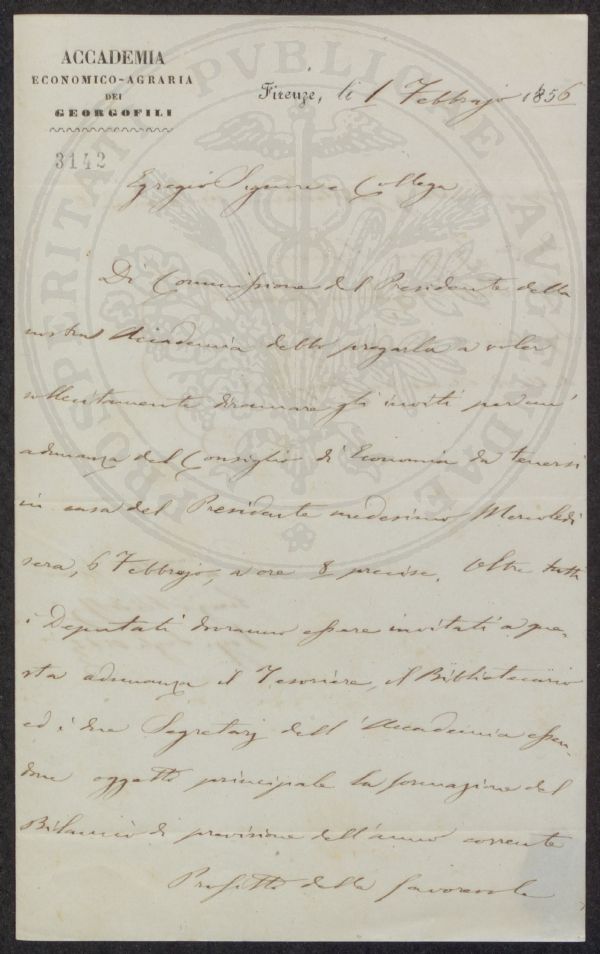 ACCADEMIA
ECONOMICO-AGRARIA
DEI
GEORGOFILI
3142
Firenze, li 1 Febbrajo 1856
Egregio Signore e Collega
Di Commissione del Presidente della
nostra Accademia debbo pregarla a voler
sollecitamente diramare gli inviti per un'
adunanza del Consiglio di Economia da tenersi
in casa del Presidente medesimo Mercoledì
sera, 6 Febbrajo, a ore 8 precise. Oltre tutti
i Deputati dovranno essere invitati a que-
sta adunanza il Tesoriere, il Bibliotecario
ed i due Segretarj dell'Accademia essen-
done oggetto principale la formazione del
Bilancio di previsione dell'anno corrente
Profitto della favorevole
PROSPERITATI PVBLICAE AVGENDAE